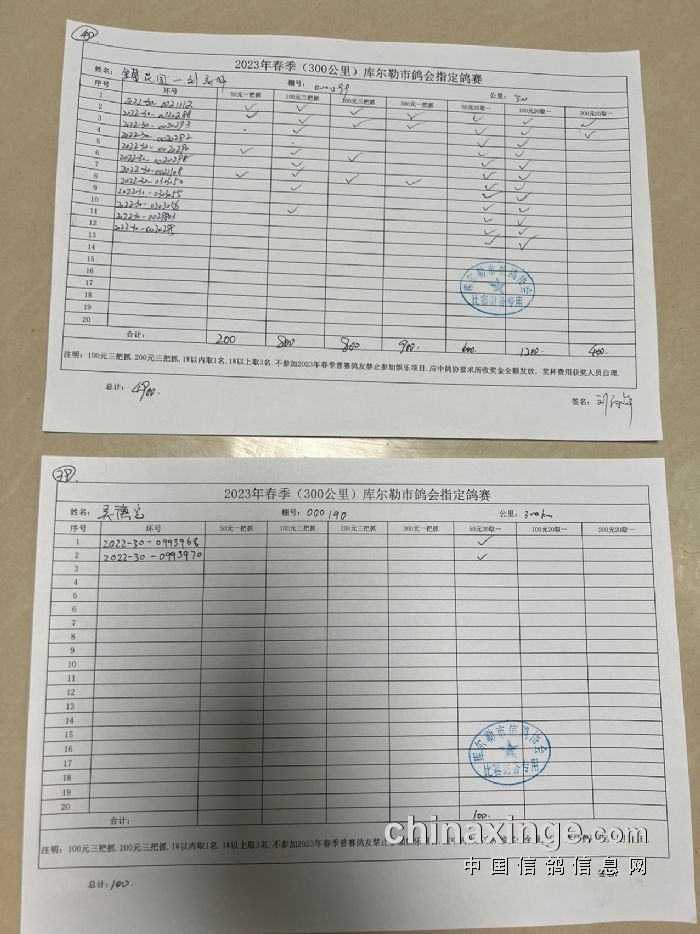 40
2023年春季（300公里）库尔勒市鸽会指定鸽赛
姓名： 棚号： 公里：300
序号 环号 50元一把抓 100元三把抓 200元三把抓 300元一把抓 50元20取一 100元20取一 200元20取一
1 2022-30-0021112
2 2022-30-0020288
3 2022-30-0020293
4 2022-30-0020292
5 2022-30-0020290
6 2022-30-0020298
7 2022-30-0021108
8 2022-30-0303050
9 2022-30-0303055
10 2022-30-0303056
11
12
13
14
15
16
17
18
19
20
库尔勒市信鸽协会
比赛财务专用
合计： 200 800 800 900 600 1200 400
注明：100元三把抓.200元三把抓.1W以内取1名.1W以上取3名.不参加2023年春季普赛鸽友禁止参加娱乐项目.应中鸽协要求所收奖金全额发放，奖杯费用获奖人员自理.
总计：4900. 签名：
2023年春季（300公里）库尔勒市鸽会指定鸽赛
姓名： 棚号：000190 公里：300km
序号 环号 50元一把抓 100元三把抓 200元三把抓 300元一把抓 50元20取一 100元20取一 200元20取一
1 2022-30-0993968 ✓
2 2022-30-0993970 ✓
3
4
5
6
7
8
9
10
11
12
13
14
15
16
17
18
19
20
库尔勒市信鸽协会
比赛财务专用
合计： 100.
注明：100元三把抓.200元三把抓.1W以内取1名.1W以上取3名.不参加2023年春季普赛鸽友禁止参加娱乐项
chinaxinge.com
中国信鸽信息网
总计：100. 签名